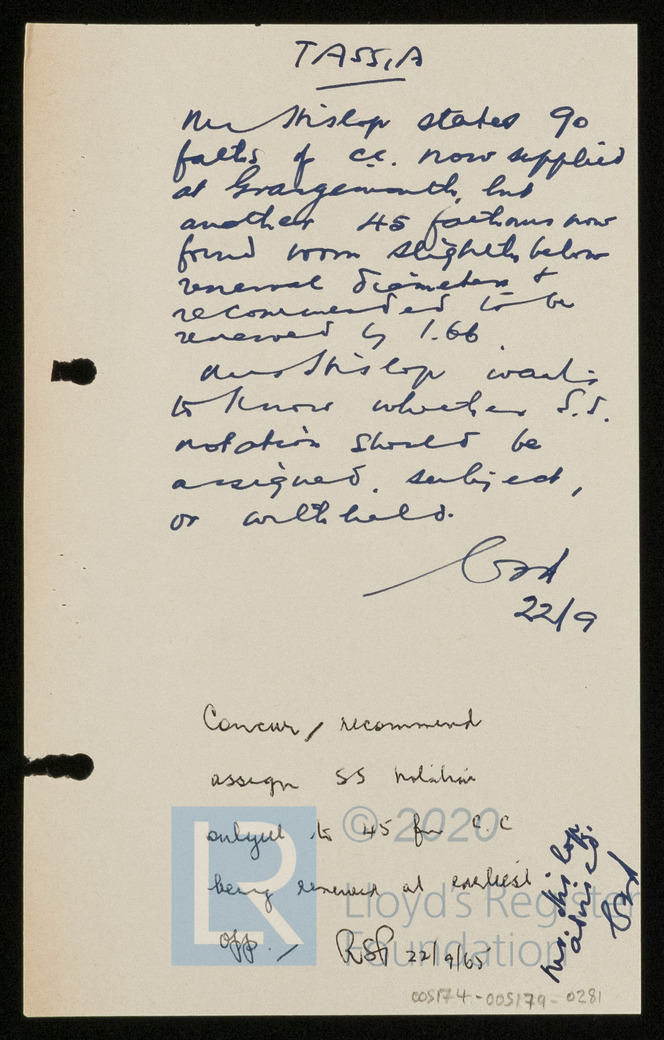 TASSIA
Mr Hislop states 90
faths of c.c. now supplied
at Grangemouth, but
another 45 fathoms now
found worn slightly below
renewal diameter &
recommended to be
renewed by 1.66
Mr Hislop wants
to know whether S.S.
notation should be
assigned, subject,
or withheld.
22/9
Concur, recommend
assign SS notation
subject to 45 fm C.C
being renewed at earliest
opp. RSP 22/9/65
Mr Hislop
advised.
© 2020
LR
Lloyd's Register
Foundation
005174-005179-0281